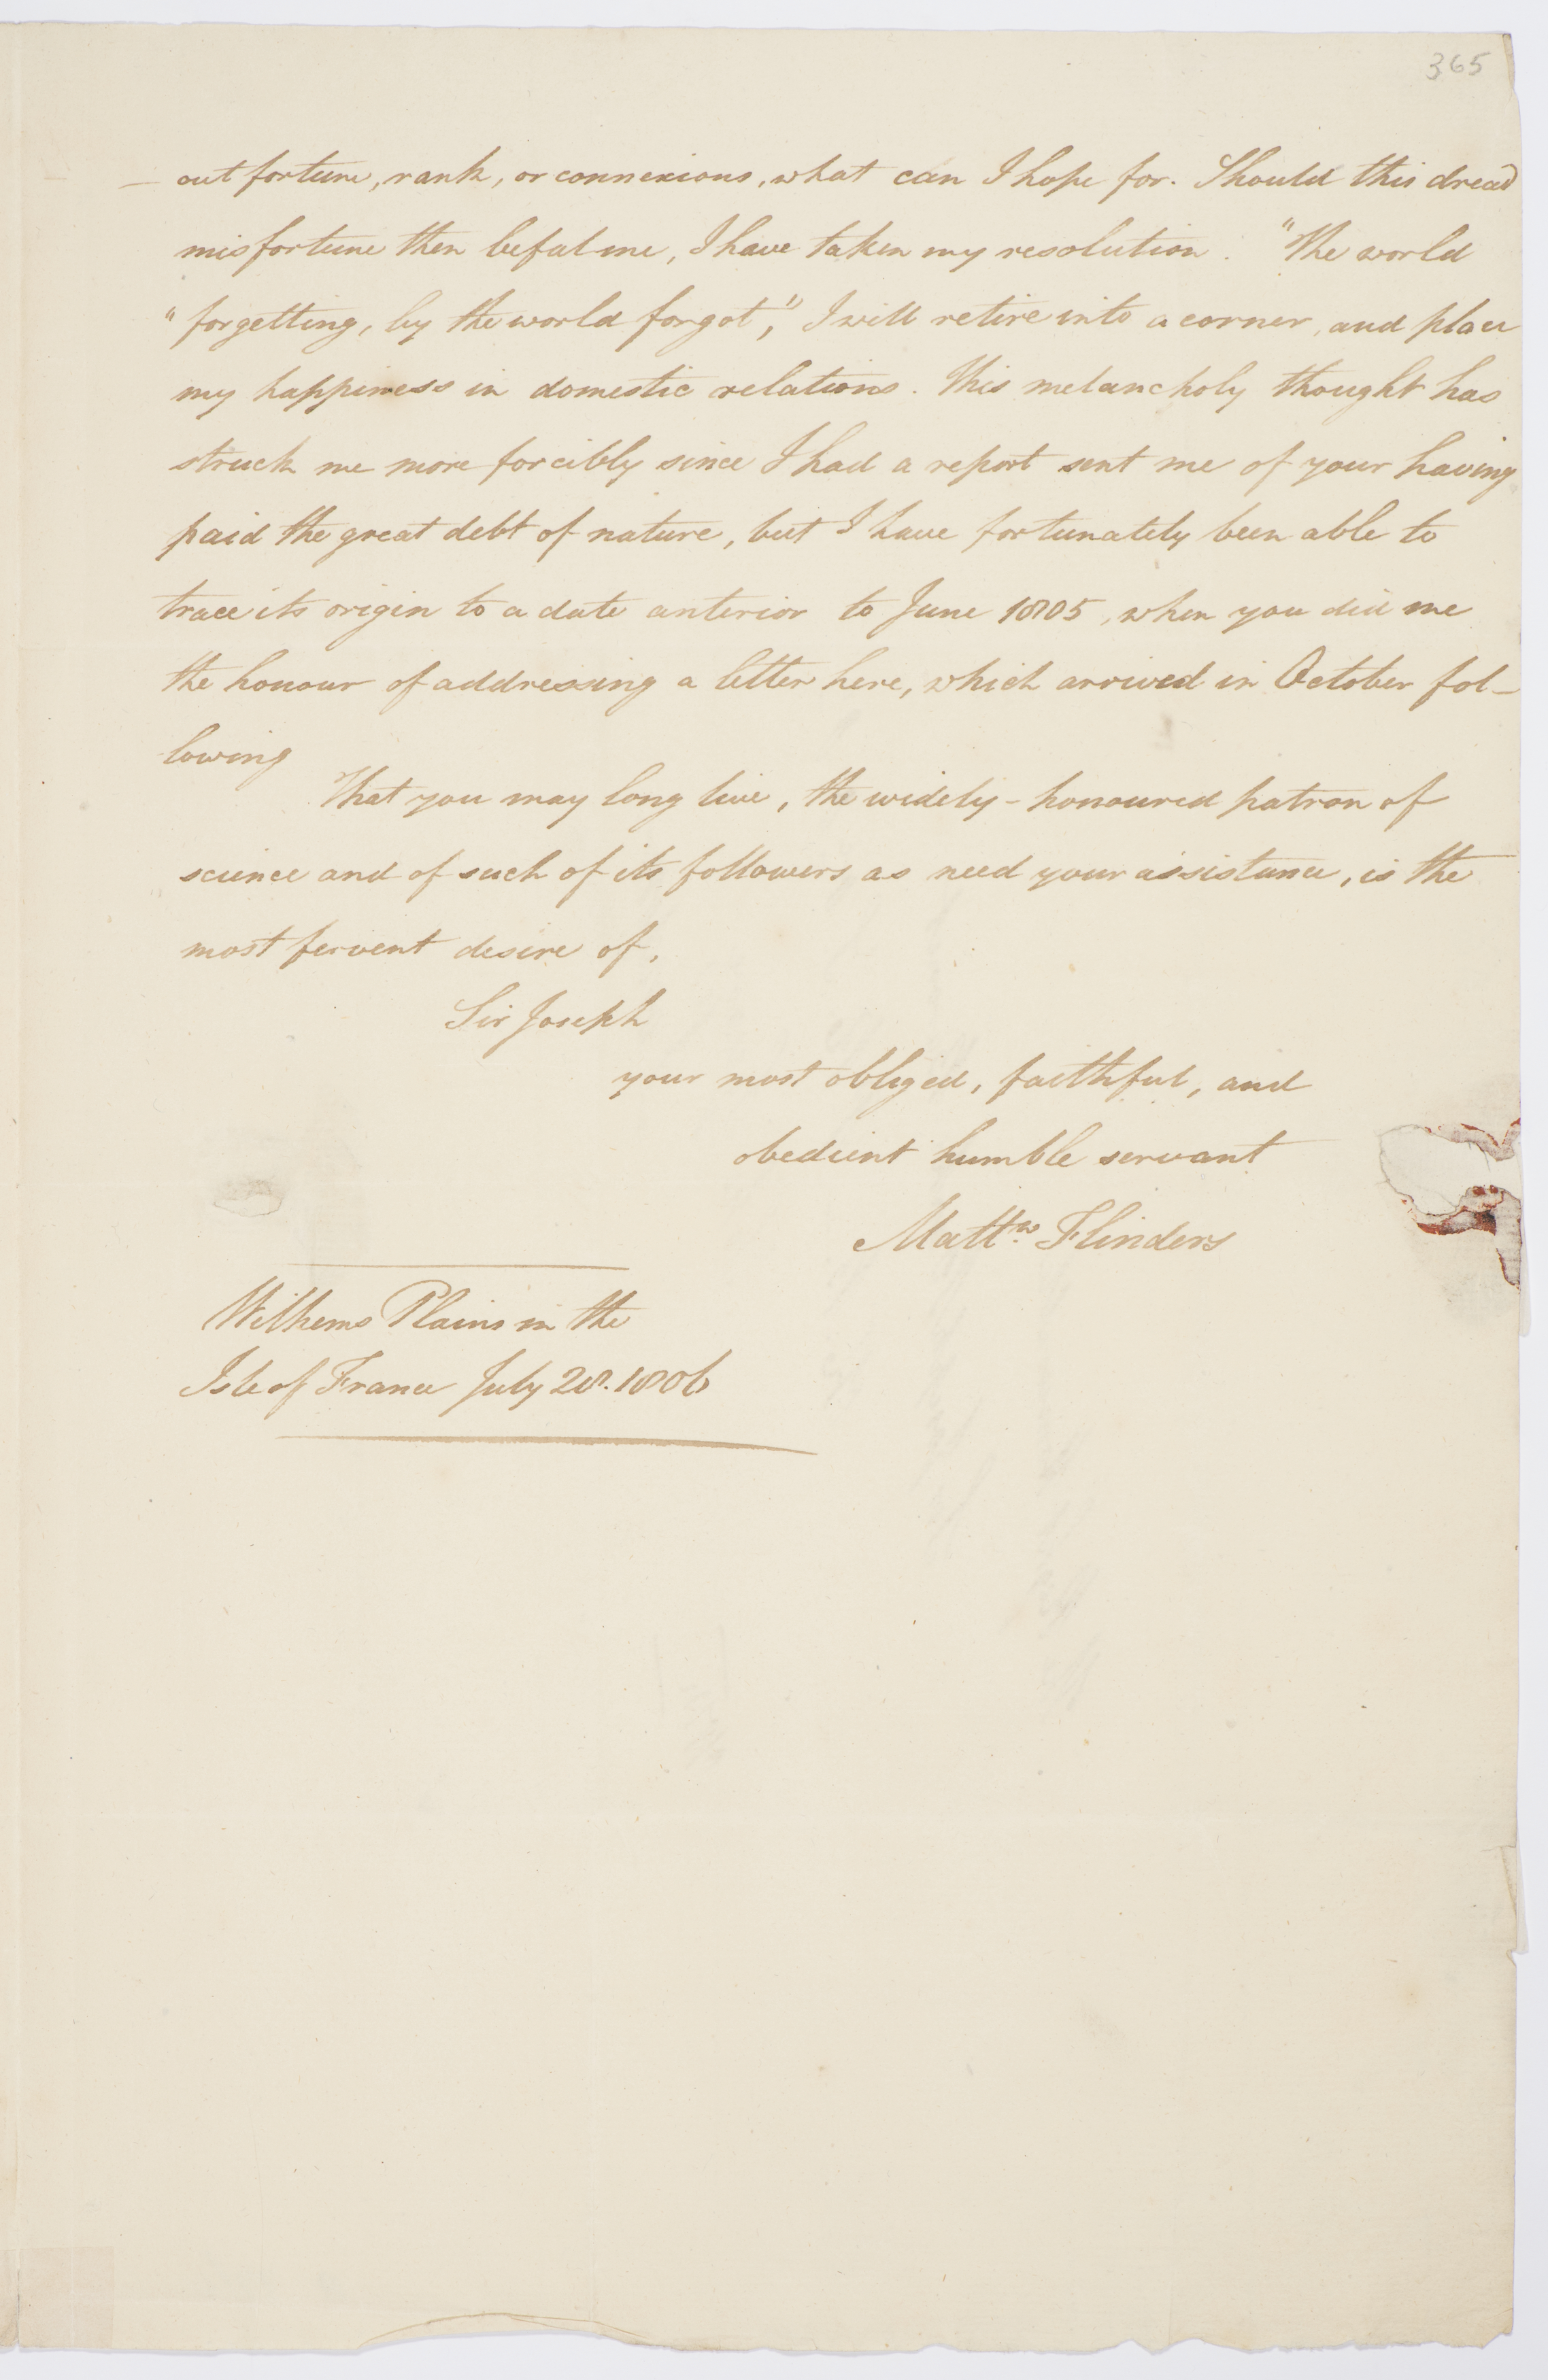 365
- out fortune, rank, or connexions, what can I hope for. Should this dread
misfortune then befal me, I have taken my resolution. "The world
"forgetting, by the world forgot," I will retire into a corner, and place
my happiness in domestic relations. This melancholy thought has
struck me more forcibly since I had a report sent me of your having
paid the great debt of nature, but I have fortunately been able to
trace its origin to a date anterior to June 1805, when you did me
the honour of addressing a letter here, which arrived in October fol-
lowing
That you may long live, the widely-honoured patron of
science and of such of its followers as need your assistance, is the
most fervent desire of,
Sir Joseph
your most obliged, faithful, and
obedient humble servant
Matt.w Flinders
Wilhems Plains in the
Isle of France July 28. 1806